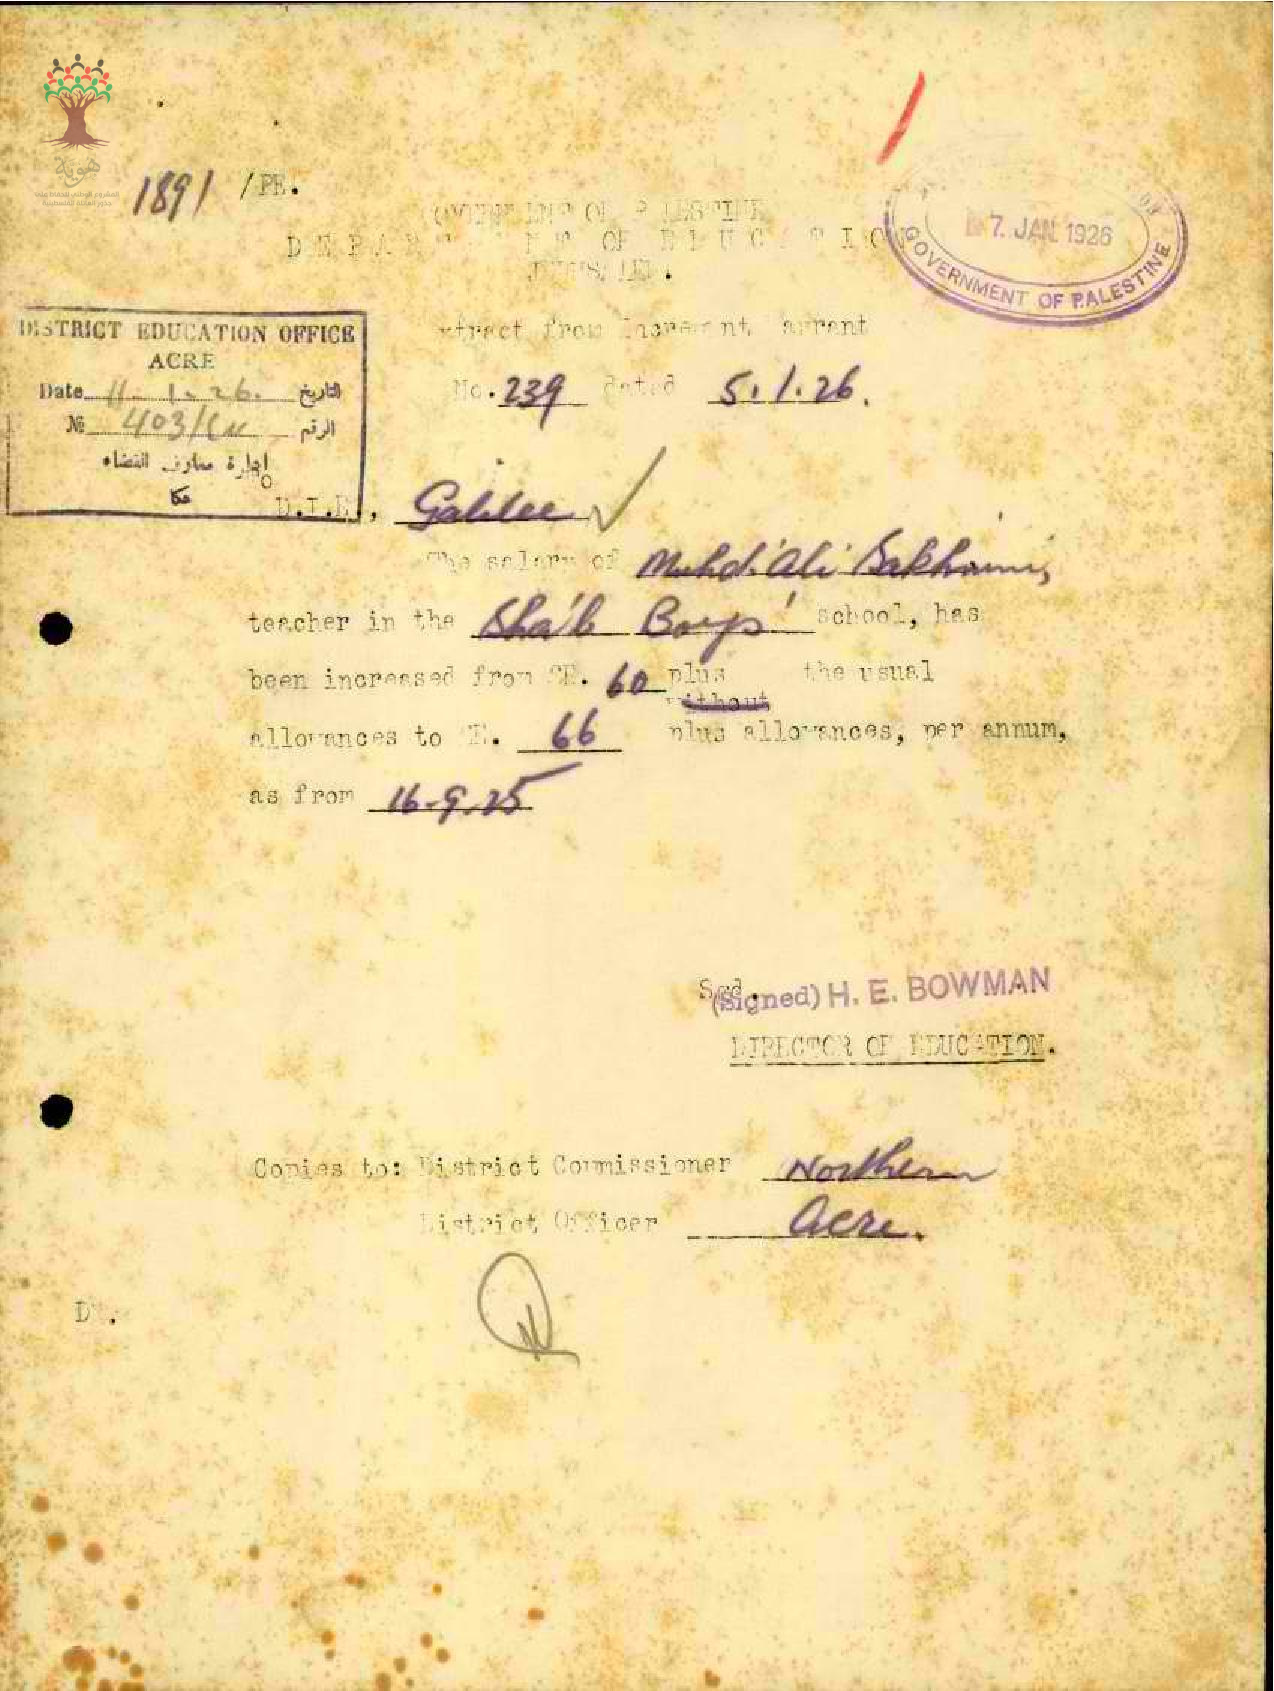 هوية
المشروع الوطني للحفاظ على
جذور العائلة الفلسطينية
1891 /PE.
GOVERNMENT OF PALESTINE
DEPARTMENT OF EDUCATION
JERUSALEM.
7. JAN 1926
GOVERNMENT OF PALESTINE
DISTRICT EDUCATION OFFICE
ACRE
Date 11.1.26. التاريخ
№ 403/ الرقم
إدارة معارف القضاء
عكا
Extract from Increment Warrant
No. 239 dated 5.1.26.
D.I.E., Galilee
The salary of Muhd. 'Ali Sakhnini,
teacher in the Sha'b Boys' school, has
been increased from £E. 60 plus the usual
without
allowances to £E. 66 plus allowances, per annum,
as from 16.9.25
Sgd.
(Signed) H. E. BOWMAN
DIRECTOR OF EDUCATION.
Copies to: District Commissioner Northern
District Officer Acre.